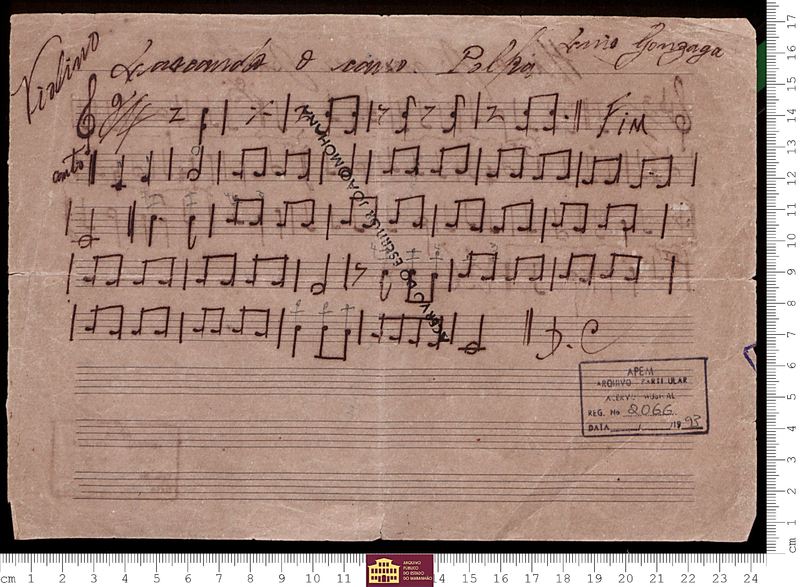 Violino
Lascando o cano. Polka Luis Gonzaga
Fim
canto
D.C
ACERVO DO ESCRITOR JOÃO MOHANA
APEM
ARQUIVO PARTICULAR
ACERVO MUSICAL
REG. No 2066
DATA / /19 93
cm 1 2 3 4 5 6 7 8 9 10 11 12 13 14 15 16 17
cm 1 2 3 4 5 6 7 8 9 10 11 14 15 16 17 18 19 20 21 22 23 24
ARQUIVO
PÚBLICO
DO ESTADO
DO MARANHÃO